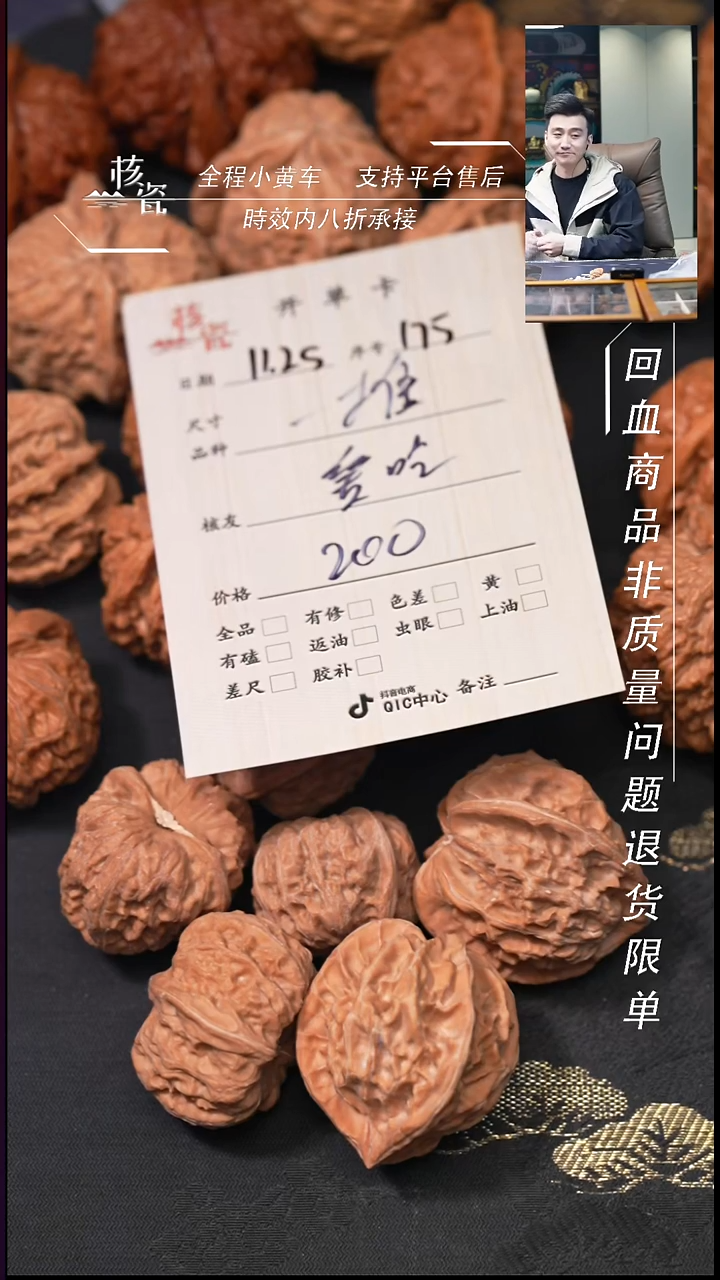 核瓷
全程小黄车 支持平台售后
時效内八折承接
回血商品非质量问题退货限单
核瓷
开单卡
日期 11.25 序号 175
尺寸 一堆
品种
核友
200
价格
全品 有修 色差 黄
有磕 返油 虫眼 上油
差尺 胶补
抖音电商
QIC中心 备注